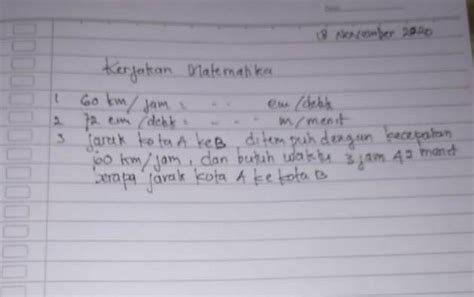 18 November 2020
Kerjakan Matematika
1 60 km/jam = - - - cm/detik
2 72 cm/detik = - - - m/menit
3 jarak kota A ke B ditempuh dengan kecepatan
60 km/jam, dan butuh waktu 3 jam 42 menit
berapa jarak kota A ke kota B